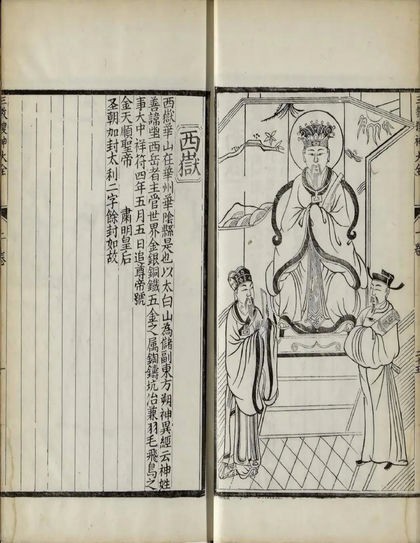 西嶽
西嶽華山在華州華陰縣是也以太白山為儲副東方朔神異經云神姓
善諱西岳者主管世界金銀銅鐵五金之属鑄坑冶兼羽毛飛鳥之
事大中祥符四年五月五日追尊帝號
金天順聖帝　肅明皇后
圣朝加封太利二字餘封如故